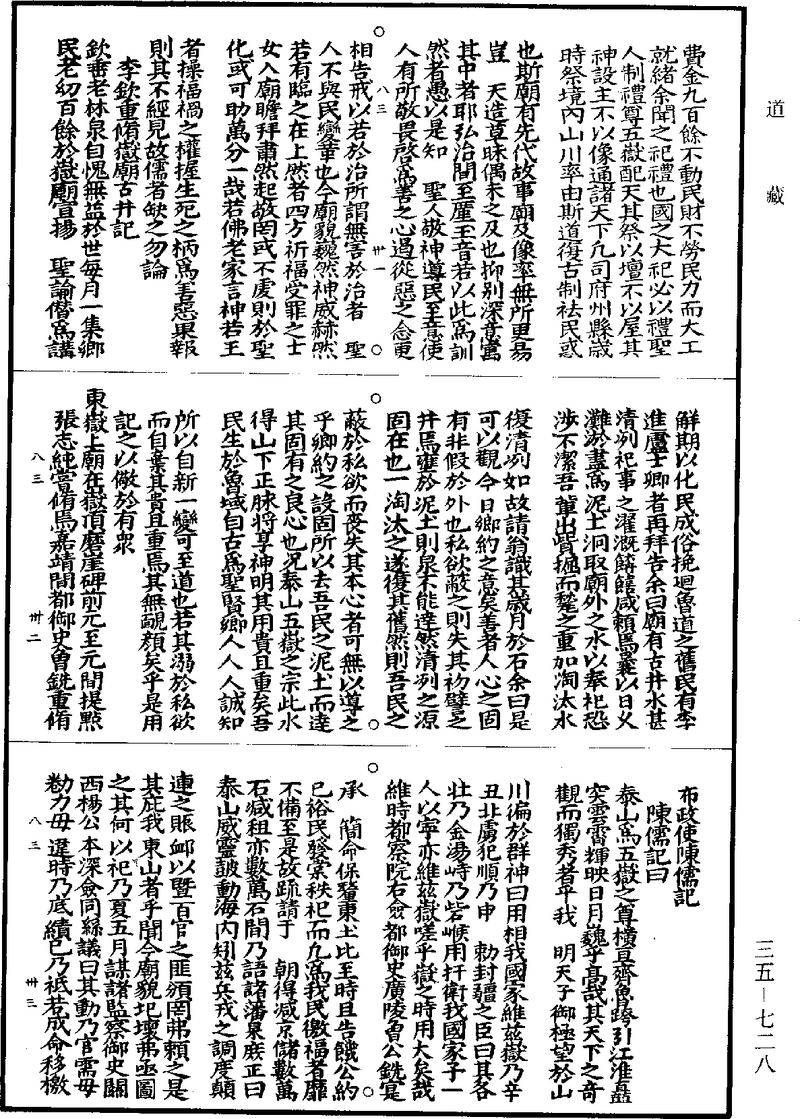 道藏
費金九百餘不動民財不勞民力而大工
就緒余聞之祀禮也國之大祀必以禮聖
人制禮尊五嶽配天其祭以壇不以屋其
神設主不以像通諸天下凡司府州縣歲
時祭境內山川率由斯道復古制祛民惑
也斯廟有先代故事廟及像率無所更易
豈　天造草昧偶未之及也抑别深意寓
其中者耶弘治間至厪玉音若以此爲訓
然者愚以是知　聖人敬神導民至意使
人有所敬畏啓爲善之心過從惡之念更
相告戒以若於治所謂無害於治者　聖
人不與民變革也今廟貌巍然神威赫然
若有臨之在上然者四方祈福受罪之士
女入廟瞻拜肅然起敬罔或不虔則於聖
化或可助萬分一哉若佛老家言神若王
者操福禍之權握生死之柄爲善惡果報
則其不經見故儒者缺之勿論
李欽重脩嶽廟古井記
欽垂老林泉自愧無益於世每月一集鄉
民老幼百餘於嶽廟宣揚　聖諭僭爲講
八三
卅一
解期以化民成俗挽廻魯道之舊民有李
進盧士卿者再拜告余曰廟有古井水甚
清冽祀事之灌溉餴饎咸頼焉曩以日乆
灘淤盡爲泥土泂取廟外之水以奉祀恐
涉不潔吾輩出貲掘而甃之重加淘汰水
復清冽如故請翁識其歲月於石余曰是
可以觀今日鄉約之意矣善者人心之固
有非假於外也私欲蔽之則失其初譬之
井焉壅於泥土則泉不能達然清冽之源
固在也一淘汰之遂復其舊然則吾民之
蔽於私欲而喪失其本心者可無以導之
乎鄉約之設固所以去吾民之泥土而達
其固有之良心也况泰山五嶽之宗此水
得山下正脉將享神明其用貴且重矣吾
民生於魯域自古爲聖賢鄉人人人誠知
所以自新一變可至道也若其溺於私欲
而自棄其貴且重焉其無覥顔矣乎是用
記之以儆於有衆
東嶽上廟在嶽頂磨崖碑前元至元間提點
張志純嘗脩焉嘉靖間都御史曾銑重脩
八三
卅二
布政使陳儒記
陳儒記曰
泰山爲五嶽之尊橫亘齊魯跨引江淮矗
突雲霄輝映日月巍乎高哉其天下之奇
觀而獨秀者乎我　明天子御極望於山
川徧於群神曰用相我國家維兹嶽乃辛
丑北虜犯順乃申　勑封疆之臣曰其各
壯乃金湯峙乃砦堠用扞衛我國家予一
人以寧亦維兹嶽嗟乎嶽之時用大矣哉
維時都察院右僉都御史廣陵魯公銑寔
承　簡命保釐東土比至時且告饑公約
已裕民發棠秩祀而凡爲我民徼福者靡
不備至是故疏請于　朝得减京儲數萬
石减租亦數萬石間乃語諸藩臬庶正曰
泰山威靈皷動海內矧兹兵戎之調度顛
連之賑卹以曁百官之匪頒罔弗頼之是
其庇我東山者乎聞今廟貌圮壞弗亟圖
之其何以祀乃夏五月謀諸監察御史關
西楊公本深僉同繇議曰其動乃官需毋
勌力毋違時乃底績已乃祗若成命移檄
八三
卅三
三五－七二八